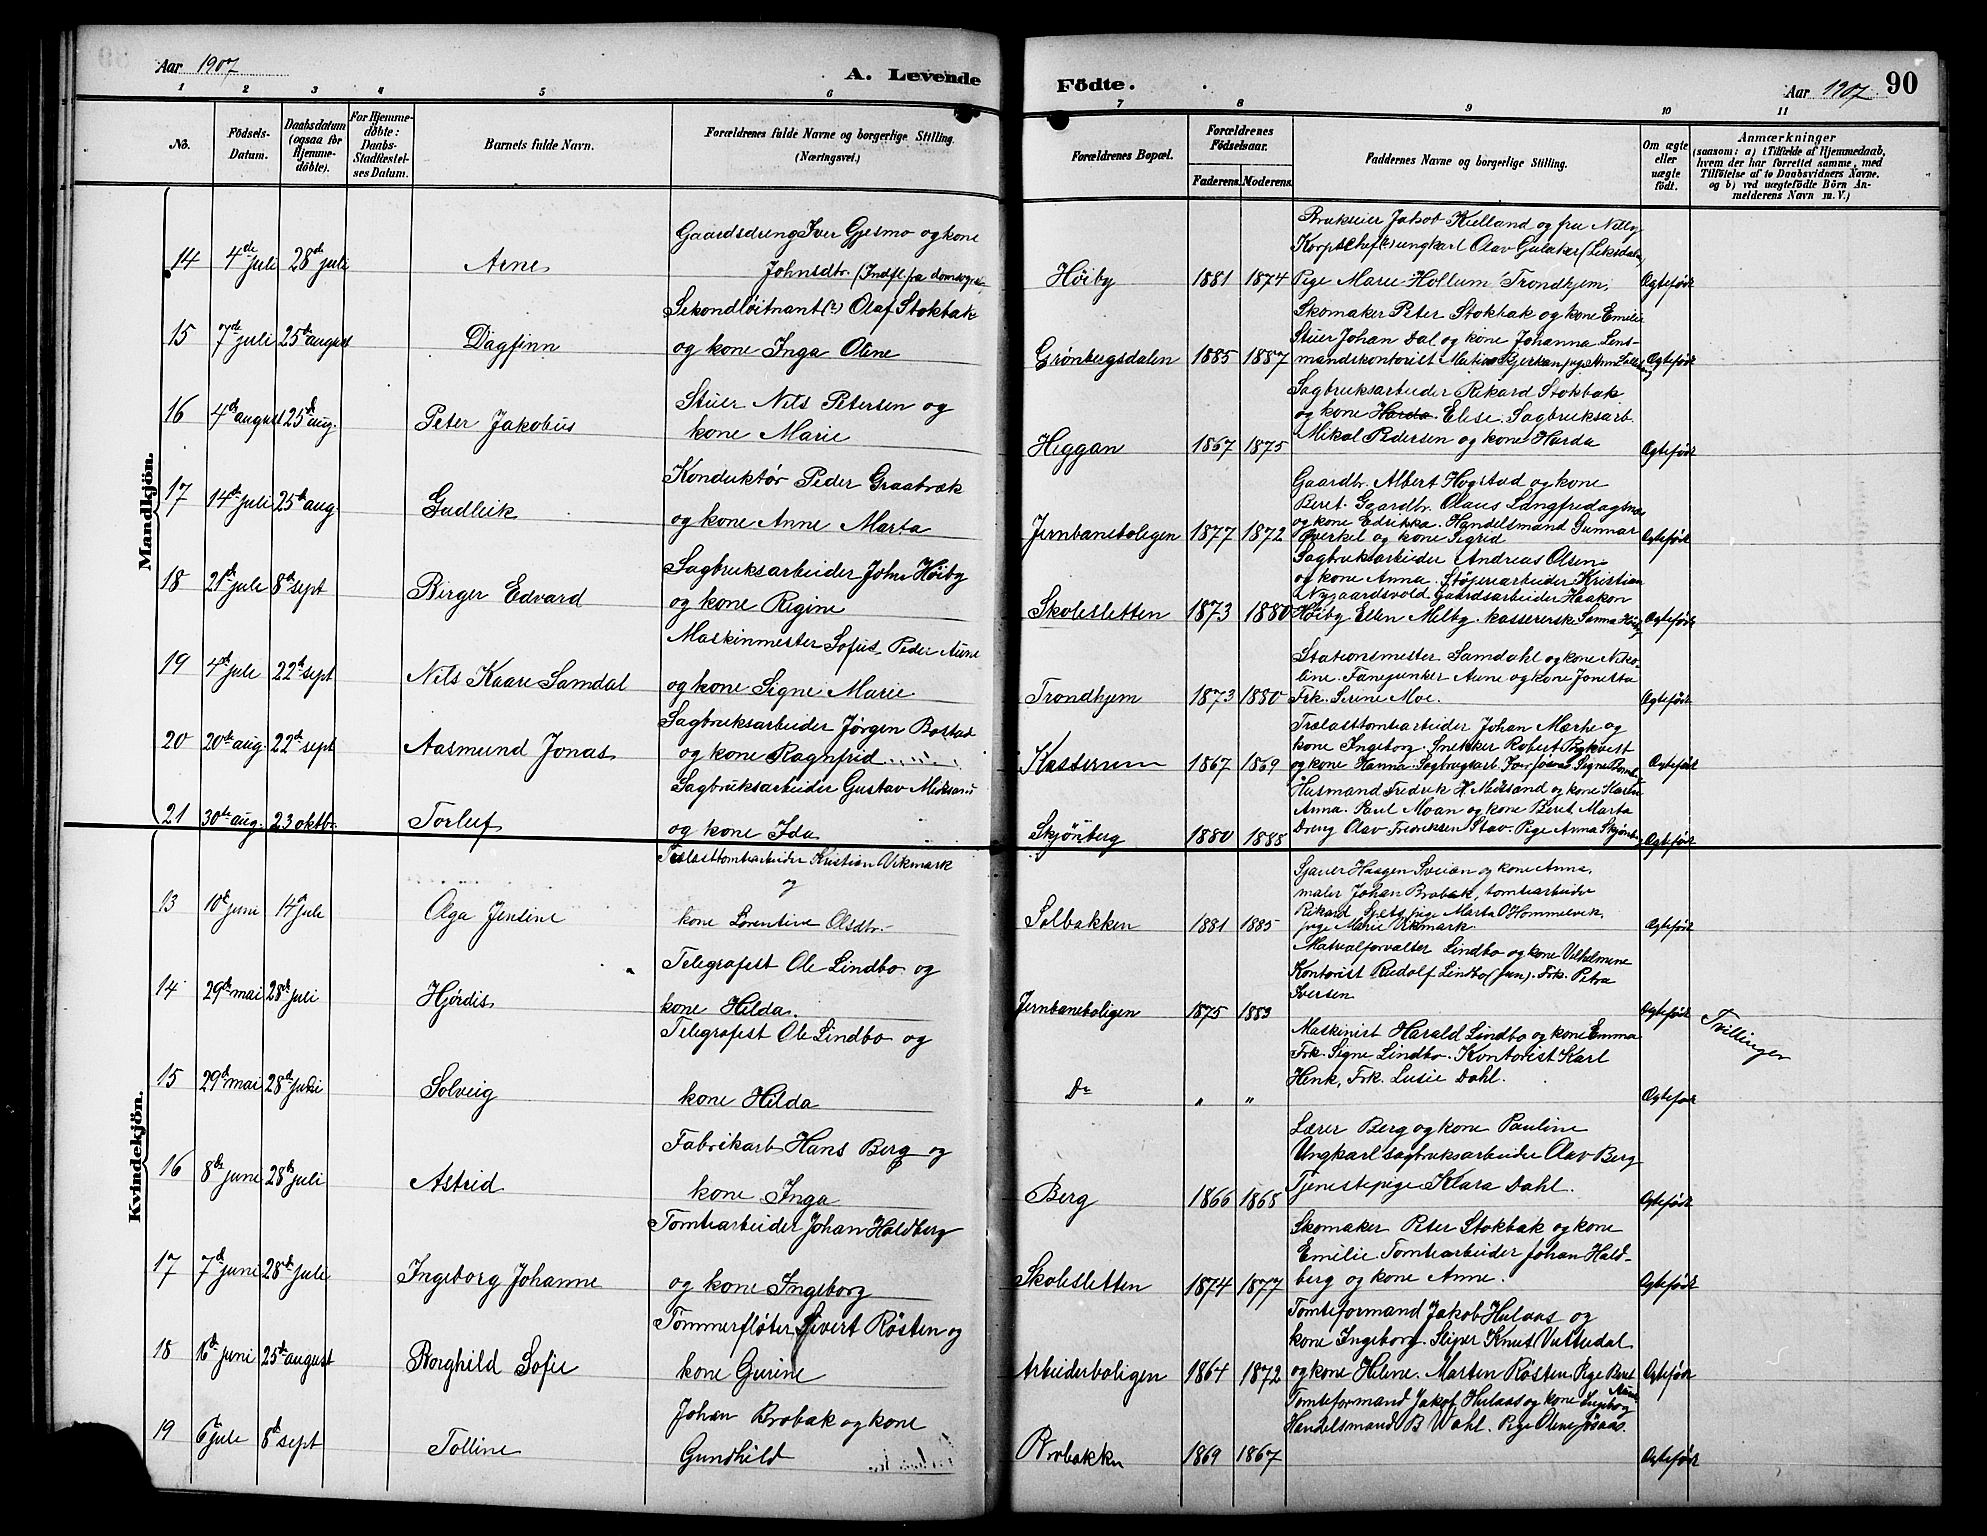 Aar 1907
A. Levende
Födte.
Aar 1907
90
1 2 3 4 5 6 7 8 9 10 11
No.
Födsels-
Datum.
Daabsdatum
(ogsaa for
Hjemme-
döbte).
For Hjemme-
döbte:
Daabs-
Stadfæstel-
ses Datum.
Barnets fulde Navn.
Forældrenes fulde Navne og borgerlige Stilling.
(Næringsvei.)
Forældrenes Bopæl.
Forældrenes
Födselsaar.
Faderens. Moderens.
Faddernes Navne og borgerlige Stilling.
Om ægte
eller
uægte
födt.
Anmærkninger
(saasom: a) i Tilfælde af Hjemmedaab,
hvem der har forrettet samme, med
Tilföielse af to Daabsvidners Navne,
og b) ved uægtefödte Börn An-
melderens Navn m. V.)
Mandkjön.
14 4de juli 28de juli Arne
Gaardsdreng Iver Gjesmo og kone
Johnsdtr. (Indfl. fra domsogne
Höiby 1881 1874
Brukseier Jakob Kielland og fru Nelly
ungkarl Olav
Pige Marie Hollum, Trondhjem,
Ægtefödt
15 7de juli 25de august Dagfinn
Sekondløitnant Olaf Stokbak
og kone Inga Oline
Grönbergsdalen 1885 1887
Skomaker Peter Stokbak og kone Emilie
Stuer Johan Dal og kone Johanna Lens-
mandskontorist
Ægtefödt
16 4de august 25de aug. Peter Jakobus
Stuer Nils Petersen og
kone Marie
Heggan 1867 1875
Sagbruksarbeider Rikard Stokbak
og kone Elise. Sagbruksarb.
Mikal Pedersen og kone Harda
Ægtefödt
17 14de juli 25de aug. Gudleik
Konduktør Peder Graabræk
og kone Anne Marta
Jernbaneboligen 1877 1872
Gaardbr. Albert Hogstad og kone
Beret. Gaardbr. Olaus
og kone Edrikka. Handelsmand Gunnar
Øverkil og kone Sigrid
Ægtefödt
18 21de jule 8de sept Birger Edvard
Sagbruksarbeider John Höiby
og kone Regine
Skolesletten 1873 1880
Sagbruksarbeider Andreas Olsen
og kone Anna. Kristian
Nygaardsvold, Gaardsarbeider Haakon
Höiby Ellen Melby. kassererske Sanna Höiby
Ægtefödt
19 4de jule 22de sept Nils Kaare Samdal
Maskinmester Sofus Peder Aune
og kone Signe Marie
Trondhjem 1873 1880
Stationsmester Samdahl og kone Niko-
line. Fanejunker Aune og kone Jonetta
Frk. Serine Moe.
Ægtefödt
20 20de aug. 22de sept Aasmund Jonas
Sagbruksarbeider Jørgen Bostad
og kone Ragnfrid
Kassernen 1867 1869
Trælasttomtarbeider Johan Mærhe og
kone Ingeborg. Snekker Robert
og kone Hanna Sagbruksarb.
Ægtefödt
21 30de aug. 23 oktbr. Torleif
Sagbruksarbeider Gustav
og kone Ida
Skjönberg 1880 1885
Husmand Fredrik H. og kone
Anna. Paul Moan og kone Beret Marta
Dreng Olav Fredriksen Stav. Pige Anna
Ægtefödt
Kvindekjön.
13 10de juni 14de jule Olga Jensine
Trælasttomtarbeider Kristian Vikmark
og
kone Lorentine Olsdtr.
Solbakken 1881 1885
Sjauer Haagen Sveian og kone Anna,
maler Johan Brobak, tomtearbeider
Rikard pige Marta Hommelvik,
pige Marie Vikmark.
Ægtefödt
14 29de mai 28de juli Hjördis
Telegrafist Ole Lindbo og
kone Hilda.
Jernbaneboligen 1875 1883
Materalforvalter Lindbo og kone Vilhelmine
Kontorist Rudolf Lindbo (jun). Frk. Petra
Iversen
Ægtefödt
Tvillinger
15 29de mai 28de Solveig
Telegrafist Ole Lindbo og
kone Hilda
Do " "
Maskinist Harald Lindbo og kone Emma
Frk. Signe Lindbo. Kontorist Karl
Henk, Frk. Lusie Dahl.
Ægtefödt
16 8de juni 28de juli Astrid
Fabrikarb. Hans Berg og
kone Inga
Berg 1866 1868
Lærer Berg og kone Pauline
Ungkarl sagbruksarbeider Olav Berg
Tjenestepige Klara Dahl.
Ægtefödt
17 7de juni 28de jule Ingeborg Johanne
Tomtearbeider Johan Haldberg
og kone Ingeborg
Skolesletten 1874 1877
Skomaker Peter Stokbak og kone
Emilie Tomtearbeider Johan Hald-
berg og kone Anne.
Ægtefödt
18 16de juni 25de august Borghild Sofie
Tømmerfløter Sivert Røsten og
kone Gurine
Arbeiderboligen 1864 1872
Tomteformand Jakob Hulaas og
kone Ingeborg. Sliper Knut
og kone Helene. Marten Røsten. Pige Beret
Aune
Ægtefödt
19 6te jule 8de sept Tolline
Johan Brobak og kone
Gundhild
Brobakke 1869 1867
Tomteformand Jakob Hulaas og kone Ingeborg
Handelsmand B Wahl. Pige Oline Jösaas.
Ægtefödt